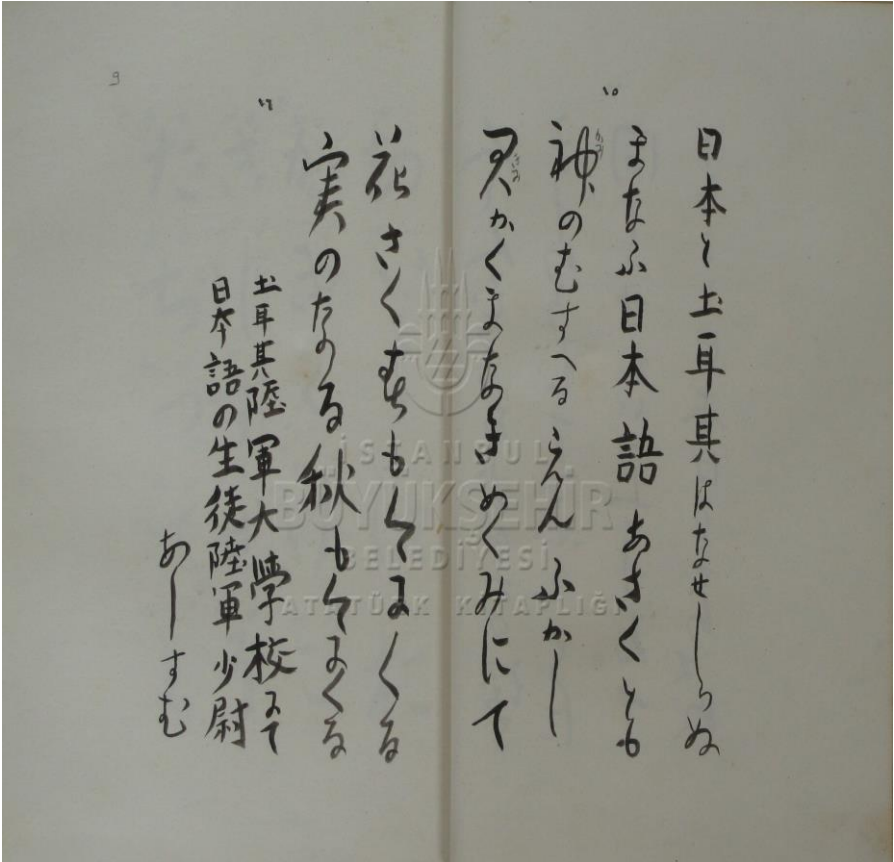 10
日本と土耳其はなせしらぬ
まなふ日本語あさくとも
神のむすへるえんふかし
かみ
君かくまなきめくみにて
きみ
花さく
も
くる
実のなる秋も
くる
土耳其陸軍大學校にて
日本語の生徒陸軍少尉
あーすむ
9
İSTANBUL
BÜYÜKŞEHİR
BELEDİYESİ
ATATÜRK KİTAPLIĞI